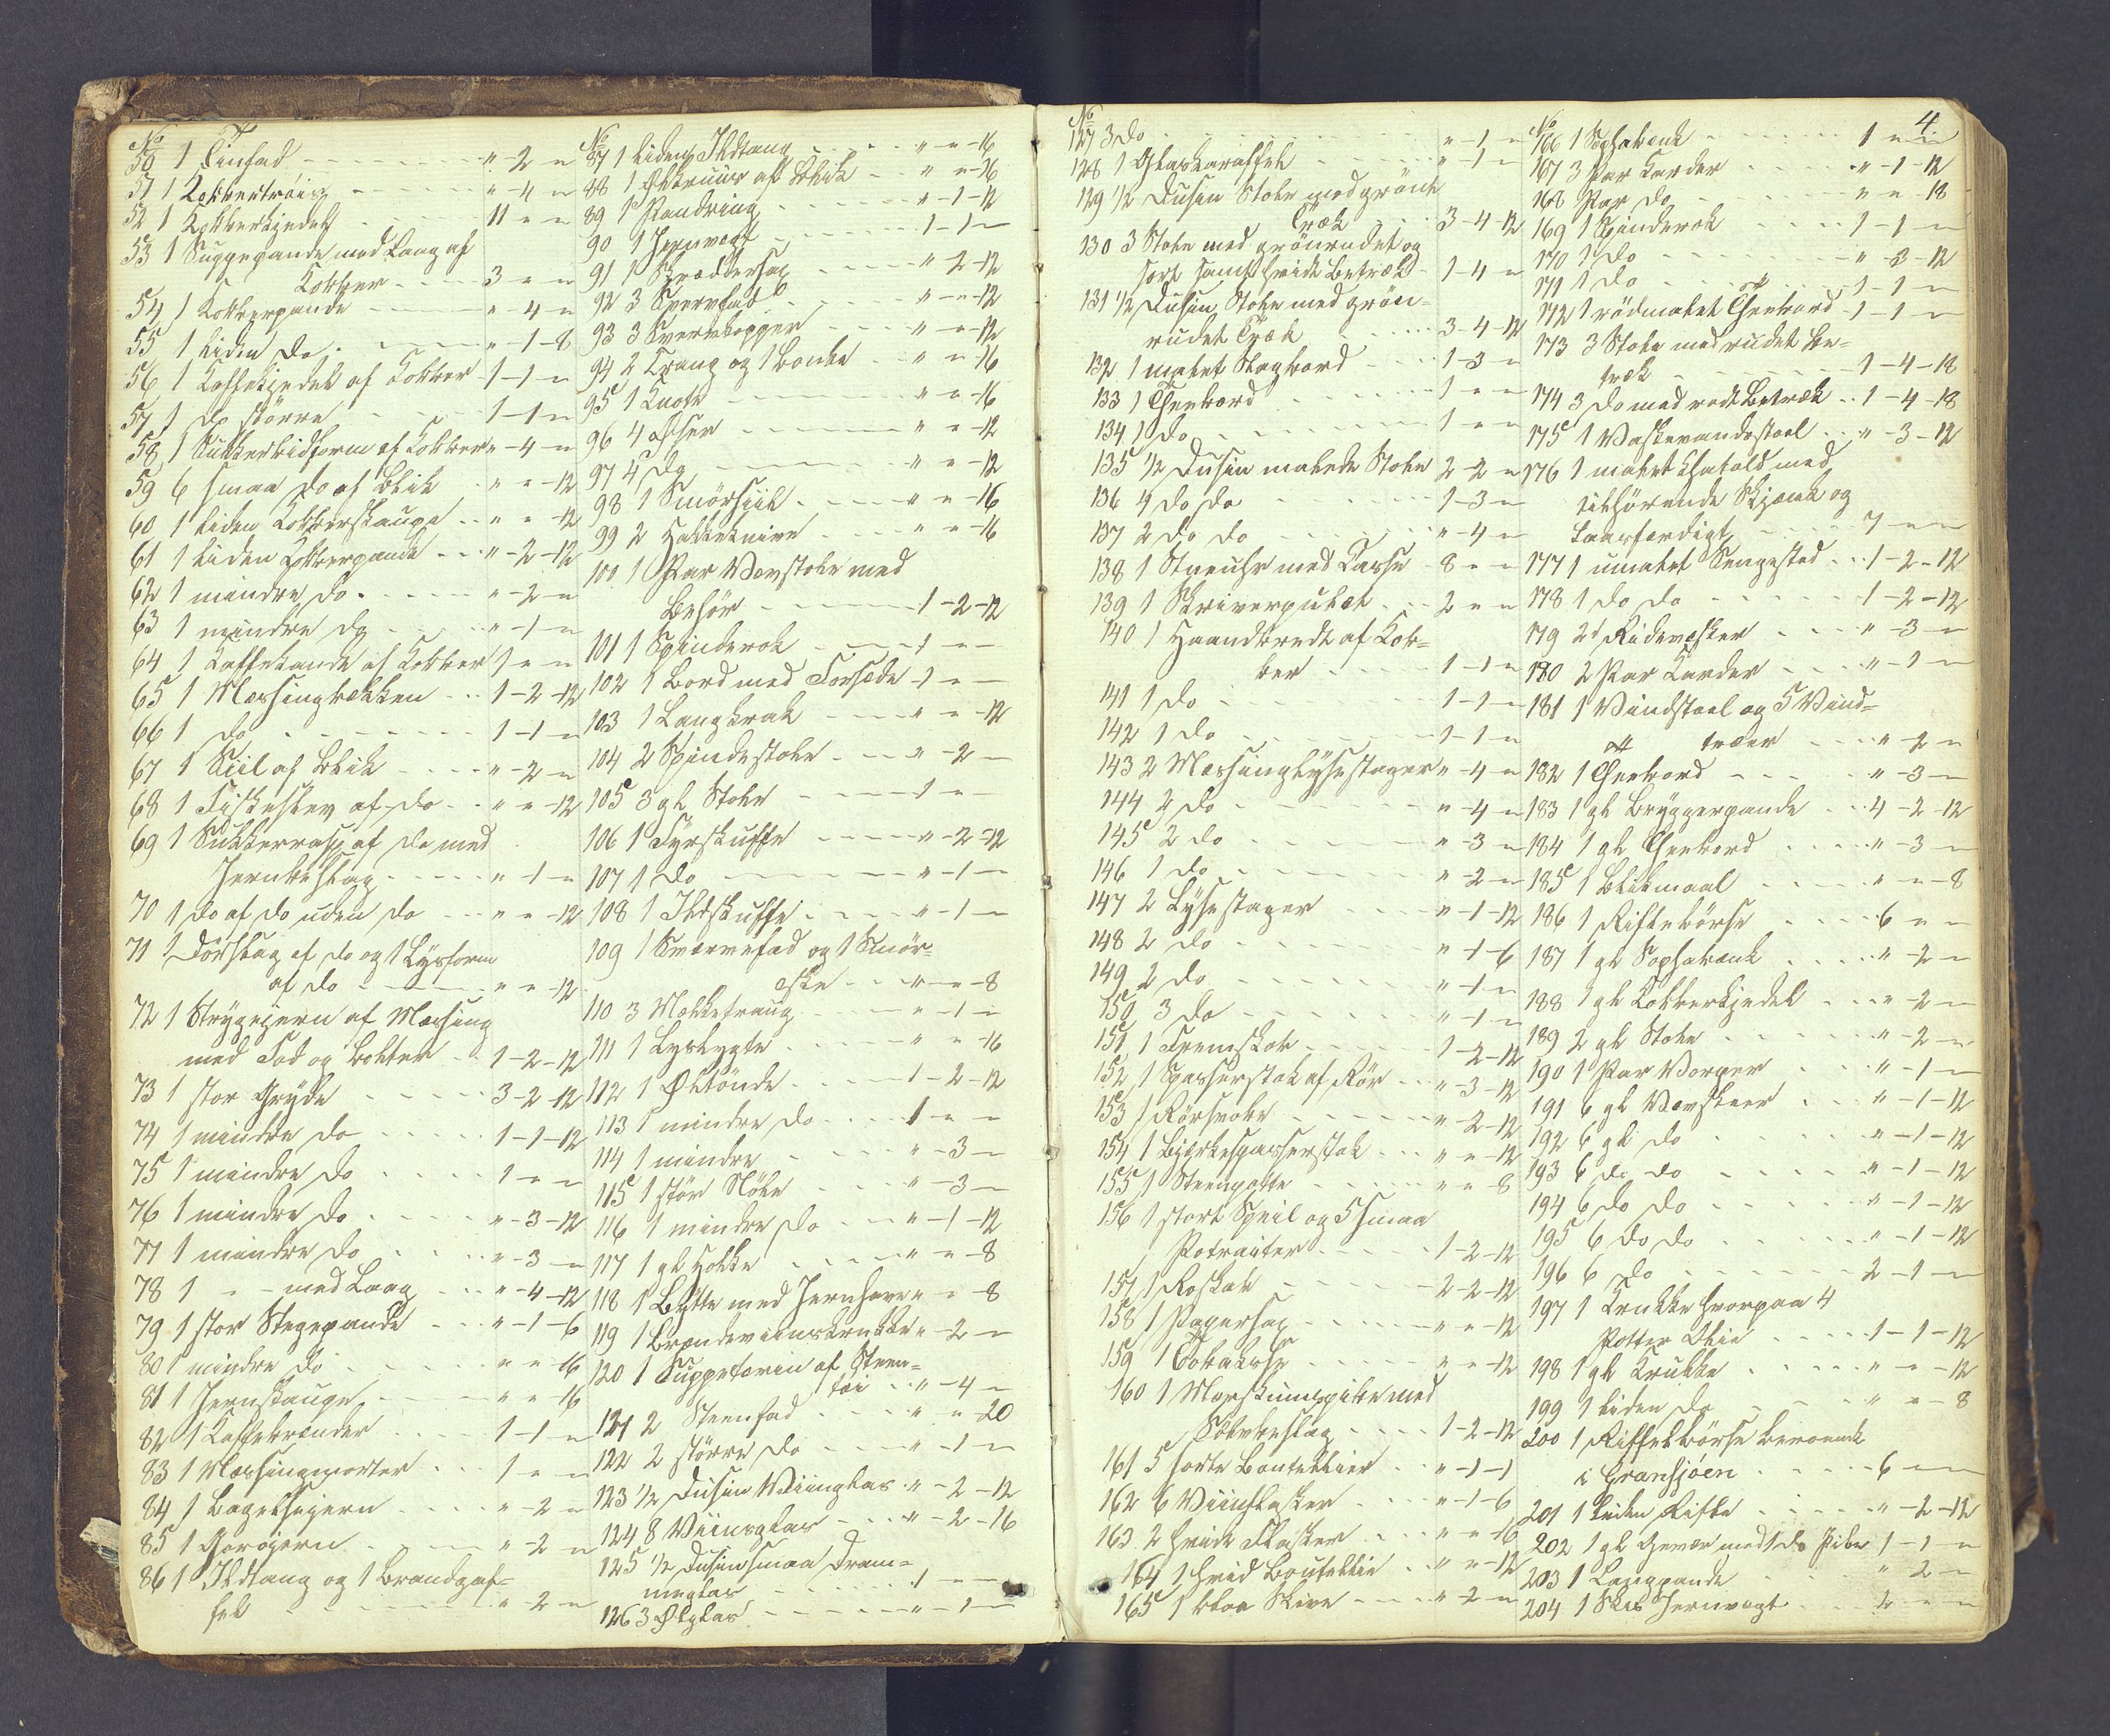 No
50 1 Tinfad - - - " - 2 - "
51 1 Kobbertröis - - " - 4 - "
52 1 Kobberkjedel - - 11 - " - "
53 1 Suppepande med Laag af
Kobber - - 3 - " - "
54 1 Kobberpande - - " - 4 - "
55 1 liden do - - " - 1 - 8
56 1 Kaffekjedel af Kobber 1 - 1 - "
57 1 do större - - 1 - 1 - "
58 1 Sukkerbrödform af Kobber " - 4 - "
59 6 smaa do af Blik " - " - 12
60 1 liden Kobberskaupe - - " - " - 12
61 1 liden Kobberpande - - " - 2 - 12
62 1 mindre do - - " - 2 - "
63 1 mindre do - - " - 1 - "
64 1 Kaffekande af Kobber 1 - " - "
65 1 Messingbækken - - 1 - 2 - 12
66 1 do - - 1 - 1 - "
67 1 Siil af Blik - - " - 2 - "
68 1 Fiskeslev af do - - " - " - 12
69 1 Sukkerrasp af do med
Jernbeslag - - " - 1 - "
70 1 do af do uden do - - " - " - 12
71 1 Dörslag af do og 1 Lysform
af do - - " - " - 12
72 1 Strygejern af Messing
med Fod og Bolter - - 1 - 2 - 12
73 1 stor Gryde - - 3 - 2 - 12
74 1 mindre do - - 1 - 1 - 12
75 1 mindre do - - 1 - " - "
76 1 mindre do - - " - 3 - 12
77 1 mindre do - - " - 3 - "
78 1 " - med Laag - - " - 4 - 12
79 1 stor Stegepande - - " - 1 - 6
80 1 mindre do - - " - " - 16
81 1 Jernskaupe - - " - " - 16
82 1 Kaffebrænder - - 1 - 1 - "
83 1 Messingmorter - - 1 - " - "
84 1 Bagelsejern - - " - 2 - "
85 1 Gorojern - - " - 2 - "
86 1 Ildtang og 1 Brandgaf=
fel - - " - 2 - "
No
87 1 liden Ildtang - - " - " - 16
88 1 Ölkruus af Blik - - " - " - 16
89 1 Pandring - - " - 1 - 12
90 1 Jernvægt - - 1 - 1 - "
91 1 Skræddersax - - " - 2 - 12
92 3 Sværvfad - - " - " - 12
93 3 Sværvkopper - - " - " - 12
94 2 Traug og 1 Bolle - - " - " - 16
95 1 - - " - " - 16
96 4 Æsker - - " - " - 12
97 4 do - - " - " - 12
98 1 Smörsiil - - " - " - 16
99 2 Hakkeknive - - " - " - 16
100 1 Par Vævstole med
Behör - - 1 - 2 - 12
101 1 Spinderok - - 1 - " -
102 1 Bord med Forsæde - 1 - " -
103 1 Langkrak - - " - " - 12
104 2 Spindestole - - " - 2 -
105 3 gl Stole - - 1 - " -
106 1 Fyrskuffe - - " - 2 - 12
107 1 do - - " - 1 -
108 1 Ildskuffe - - " - 1 -
109 1 Sværvefad og 1 Smör=
æske - - " - " - 8
110 3 Melketraug - - " - 1 -
111 1 Lyslygte - - " - " - 16
112 1 Öltönde - - 1 - 2 - 12
113 1 mindre do - - 1 - " -
114 1 mindre - - " - 3 -
115 1 stör - - " - 3 -
116 1 mindre do - - " - 1 - 12
117 1 gl Holke - - " - " - 8
118 1 Bytte med Jernhave " - " - 8
119 1 Brændeviinskrukke " - 2 - "
120 1 Suppeterin af Steen=
töi - - " - 4 - "
121 2 Steenfad - - " - " - 20
122 2 större do - - " - 1 - "
123 1/2 Dusin Viinglas - - " - 2 - 12
124 8 Viinsglas - - " - 2 - 16
125 1/2 Dusin smaa Dram=
meglas - - 1 - -
126 3 Ölglas - - " - 1 -
4
No
127 3 do - - " - 1 - "
128 1 Glaskaraffel - - " - 1 - "
129 1/2 Dusin Stole med grönt
Træk - - 3 - 4 - 12
130 3 Stole med grönrudet og
sort samt hvidt Betræk - 1 - 4 - "
131 1/2 Dusin Stole med grön=
rudet Træk - - 3 - 4 - 12
132 1 malet Slagbord - - 1 - 3 - "
133 1 Theebord - - 1 - " - "
134 1 do - - 1 - " - "
135 1/2 Dusin malede Stole 2 - 2 - "
136 4 do do - - 1 - 3 - "
137 2 do do - - " - 4 - "
138 1 Stueuhr med Kasse - 8 - " - "
139 1 Skriverpulæt - - 2 - " - "
140 1 Haandbredt af Kob=
ber - - 1 - 1 - "
141 1 do - - 1 - 1 - "
142 1 do - - 1 - 1 - "
143 2 Messinglysestager " - 4 - "
144 2 do - - " - 4 - "
145 2 do - - " - 3 - "
146 1 do - - " - 2 - "
147 2 Lysestager - - " - 1 - 12
148 2 do - - " - 1 - 6
149 2 do - - " - 1 - "
150 3 do - - " - 1 - "
151 1 Fremskab - - 1 - 2 - 12
152 1 Spasserstok af Rör - - " - 3 - 12
153 1 Rörsvöbe - - " - 2 - 12
154 1 Birkespasserstok - - " - " - 12
155 1 Steenpotte - - " - " - 8
156 1 stort Speil og 5 smaa
Potraiter - - 1 - 2 - 12
157 1 Roskab - - 2 - 2 - 12
158 1 Papersax - - " - " - 12
159 1 - - " - " - 12
160 1 Merskumspibe med
Sölvbeslag - - 1 - 2 - 12
161 5 sorte Bouteillier - - " - 1 - 1
162 6 Viinflasker - - " - 1 - 6
163 2 hvide Flasker - - " - " - 16
164 1 hvid Bouteille - - " - " - 12
165 1 blaa Skive - - " - 2 - "
No
166 1 Sophabænk - - 1 - " - "
167 3 Par Karder - - " - 1 - 12
168 Par do - - " - " - 18
169 1 Spinderok - - 1 - 1 - "
170 1 do - - " - 3 - 12
171 1 do - - 1 - 1 - "
172 1 rödmalet Theebord 1 - 1 - "
173 3 Stole med rudet Be=
træk - - 1 - 4 - 18
174 3 do med rødt Betræk - - 1 - 4 - 18
175 1 Vaskevandsstoel - - " - 3 - 12
176 1 malet Chatold med
tilhörende Skjænk og
Laasfærdigt - - 7 - " - "
177 1 umalet Sengested - - 1 - 2 - 12
178 1 do do - - 1 - 2 - 12
179 2 Ridevesker - - " - 3 - "
180 2 Par Karder - - " - 1 - "
181 1 Vindstoel og 5 Vind=
træer - - " - 2 - "
182 1 Theebord - - " - 3 -
183 1 gl Bryggerpande - - 4 - 2 - 12
184 1 gl Theebord - - " - 3 -
185 1 Blikmaal - - " - " - 8
186 1 Riflebörse - - 6 - " -
187 1 gl Sophabænk - - " - 2 - "
188 1 gl Kobberkjedel - - " - 2 -
189 2 gl Stole - - " - 2 -
190 1 Par Vorper - - " - 1 -
191 6 gl Vævskeer - - " - 1 - 12
192 6 gl do - - " - 1 - 12
193 6 do do - - " - 1 - 12
194 6 do do - - " - 1 - 12
195 6 do do - - " - 1 - 12
196 6 do - - 2 - 1 -
197 1 Krukke hvorpaa 4
Potter Olie - - 1 - 1 - 12
198 1 gl Krukke - - " - " - 12
199 1 liden do - - " - " - 8
200 1 Riffelbörse beroende
i Gransjöen - - 6 - -
201 1 liden Rifle - - " - 2 - 12
202 1 gl Gevær med 1 do Pibe 1 - 1 - "
203 1 Langpande - - " - 2 - "
204 1 Jernvægt - - 2 - " - "